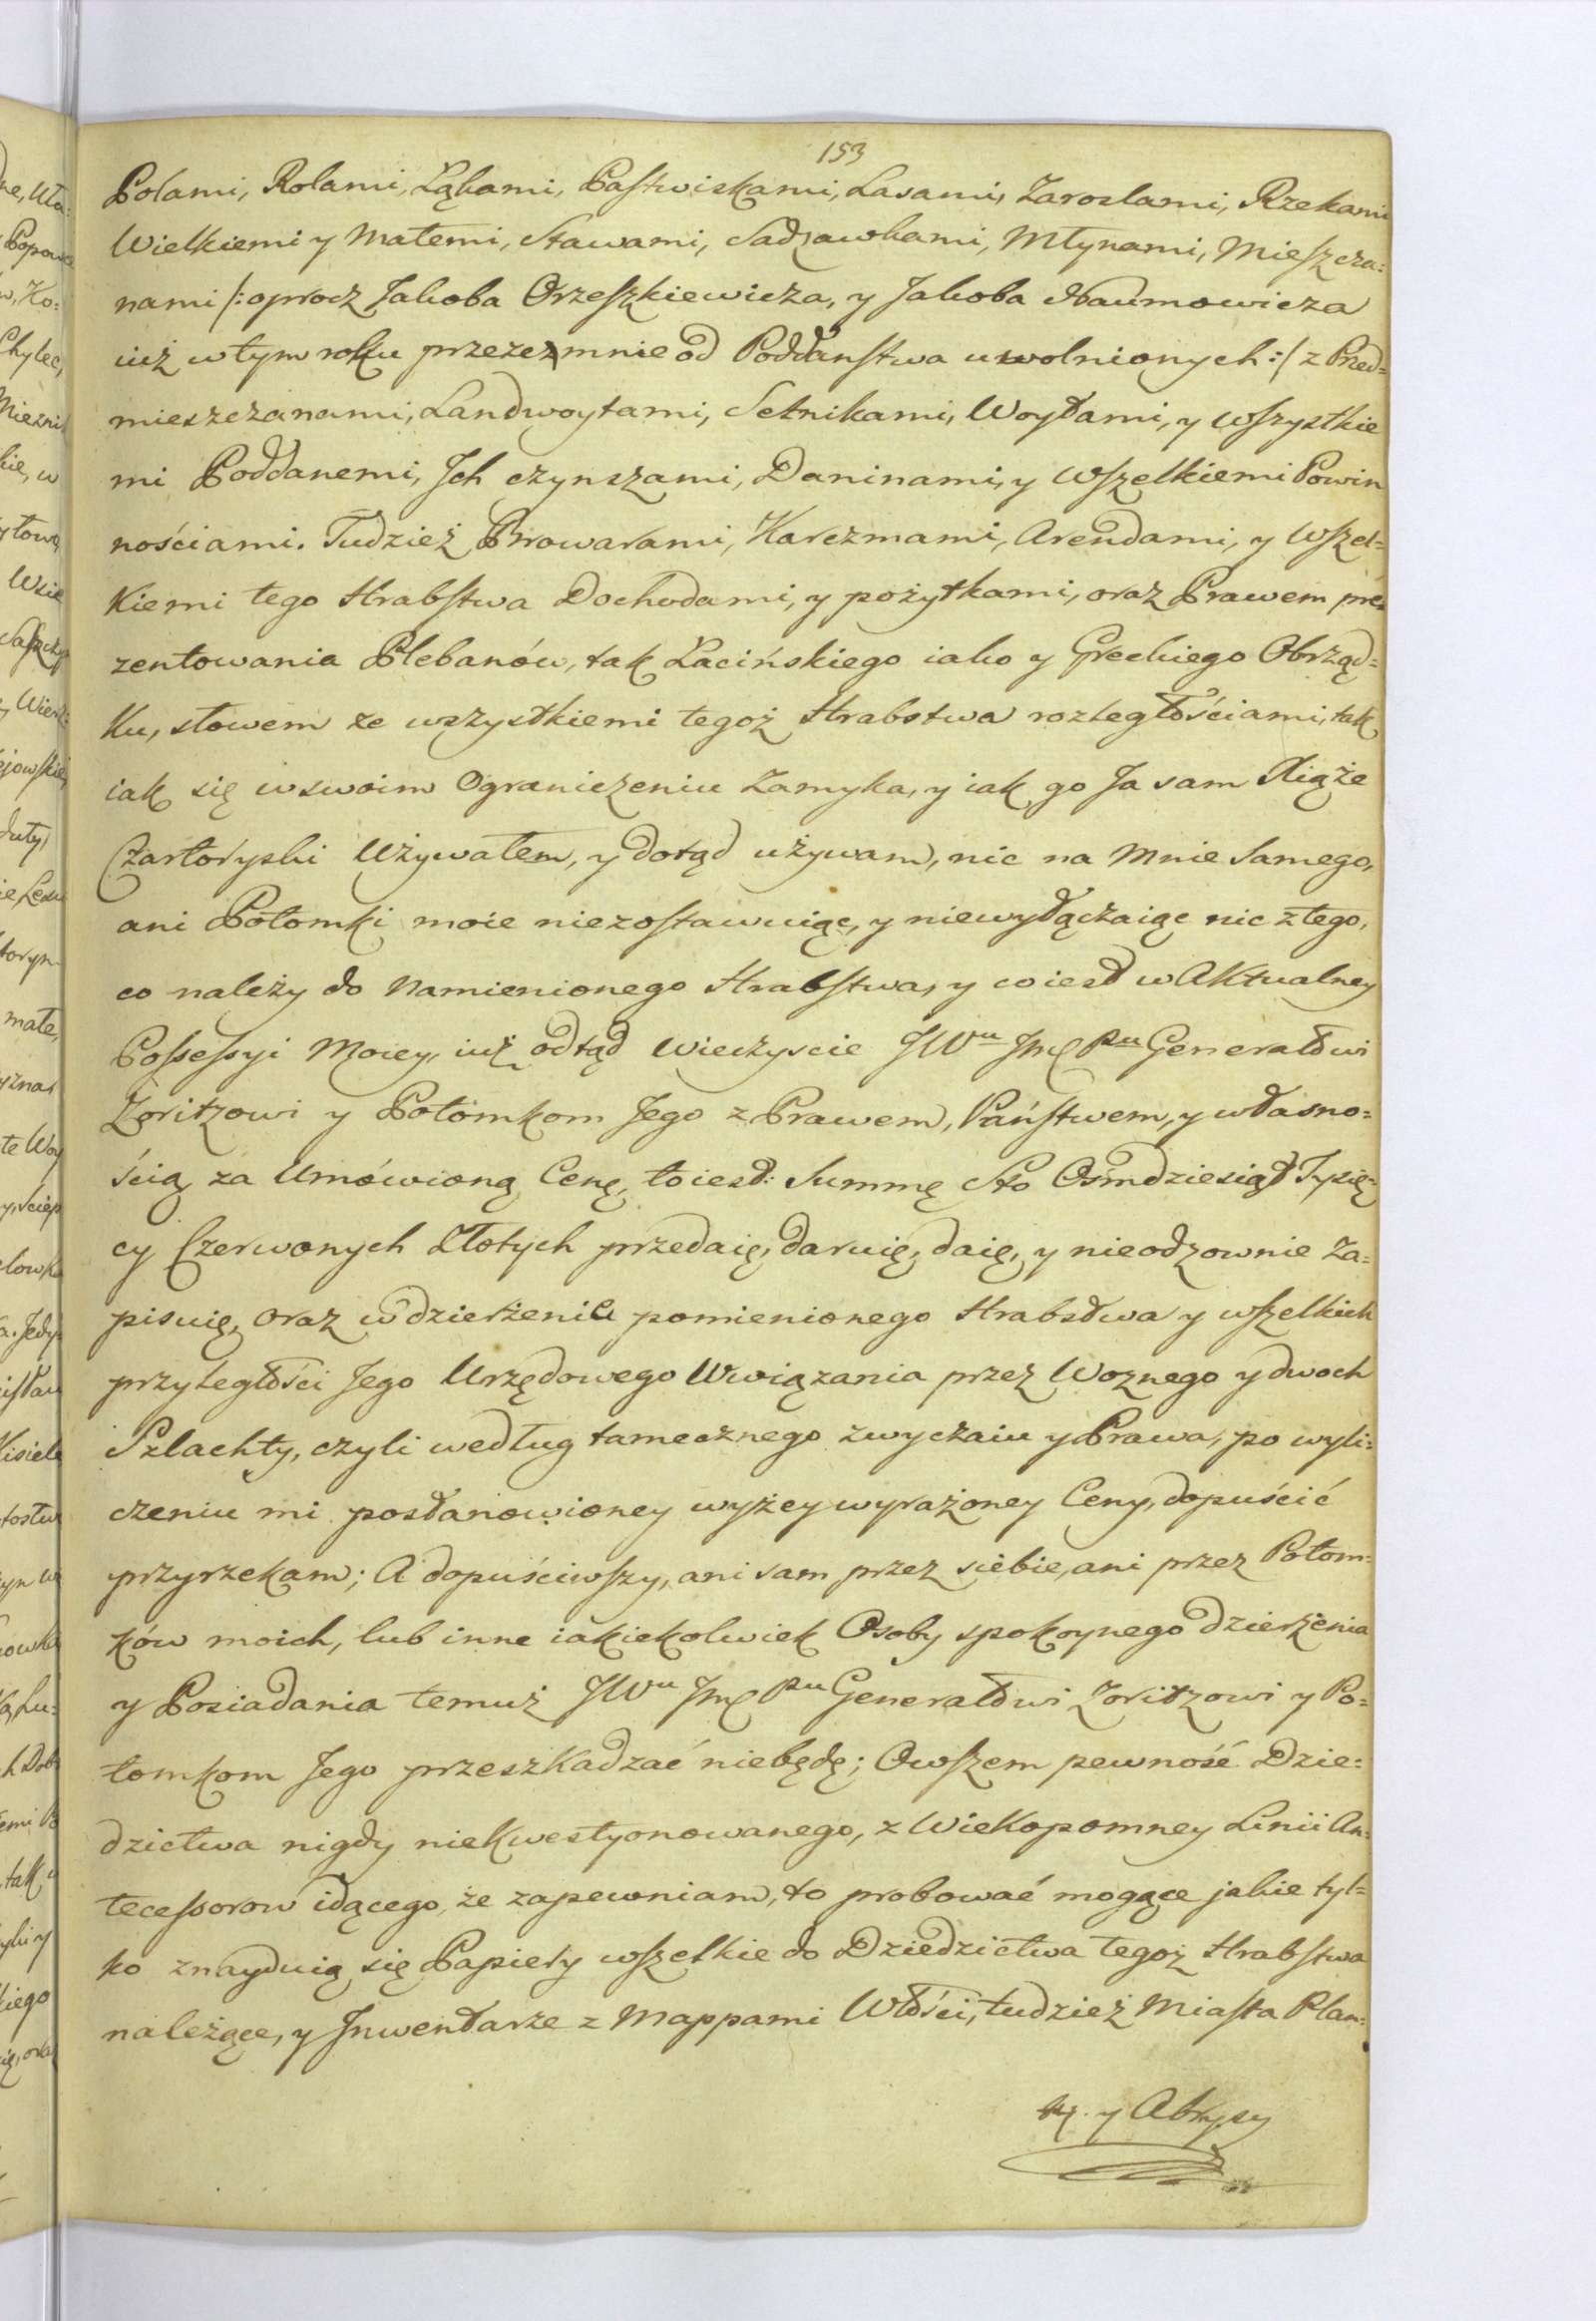 153
Polami, Rolami, Łąkami, Pastwiskami, Lasami, Zaroslami, Rzekami
Wielkiemi y Małemi, Stawami, Sadzawkami, Młynami, Mieszcza=
nami /: oprocz Jakoba Orzeszkiewicza, y Jakoba Naumowicza
iuż w tym roku przezemnie od Poddanstwa uwolnionych :/ z Pred=
mieszczanami, Landwoytami, Setnikami, Woytami, y wszystkie
mi Poddanemi, Jch czynszami, Daninami, y wszelkiemi Powin
nościami. Tudzież Browarami, Karczmami, Arendami, y wszel=
kiemi tego Hrabstwa Dochodami, y pożytkami, oraz Prawem pre
zentowania Plebanów, tak Łacińskiego iako y Greckiego Obrząd=
ku, słowem ze wszystkiemi tegoż Hrabstwa rozległościami, tak
iak się w swoim Ograniczeniu Zamyka, y iak go Ja sam Xiąże
Czartoryski Używałem, y dotąd używam, nic na Mnie Samego,
ani Potomki moie niezostawuiąc, y niewyłączaiąc nic z tego,
co należy do Namienionego Hrabstwa, y co iest w Aktualney
Possessyi Moiey, iuż odtąd Wieczyscie JWu Jmć Pu Generałowi
Zoritzowi y Potomkom Jego z Prawem, Państwem, y własno=
ścią za Umówioną Cenę, toiest: Summę Sto Ośmdziesiąt Tysię
cy Czerwonych Złotych przedaię, daruię, daię, y nieodzownie Za=
pisuię, oraz w dzierżenie pomienionego Hrabstwa y wszelkich
przyległości Jego Urzędowego Wwiązania przez Woznego y dwoch
Szlachty, czyli według tamecznego zwyczaiu y Prawa, po wyli=
czeniu mi postanowioney wyżey wyrażoney Ceny, dopuścić
przyrzekam; A dopuściwszy, ani sam przez siebie, ani przez Potom=
ków moich, lub inne iakiekolwiek Osoby spokoynego dzierżenia
y Posiadania temuż JWu Jmć Pu Generałowi Zoritzowi y Po=
tomkom Jego przeszkadzać niebędę; Owszem pewność Dzie=
dzictwa nigdy niekwestyonowanego, z Wiekopomney Linii An=
tecessorow idącego, że zapewniam, to probować mogące jakie tyl=
ko znayduią się Papiery wszelkie do Dziedzictwa tegoż Hrabstwa
należące, y Jnwentarze z Mappami Włości, tudzież Miasta Plan=
ty. y Abrysy